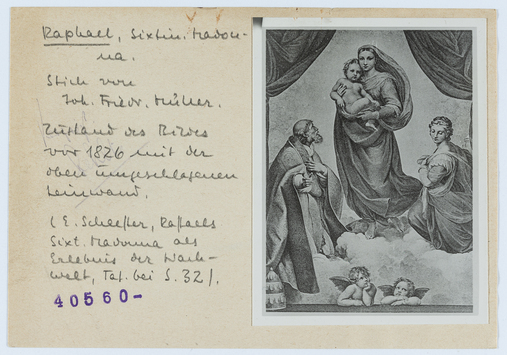 Raphael, Sixtin. Madon-
na.
Stich von
Joh. Friedr. Müller.
Zustand des Bildes
vor 1826 mit der
oben umgeschlagenen
Leinwand.
(E. Schaeffer, Raffaels
Sixt. Madonna als
Erlebnis der Nach-
welt, Taf. bei S. 32).
40560-